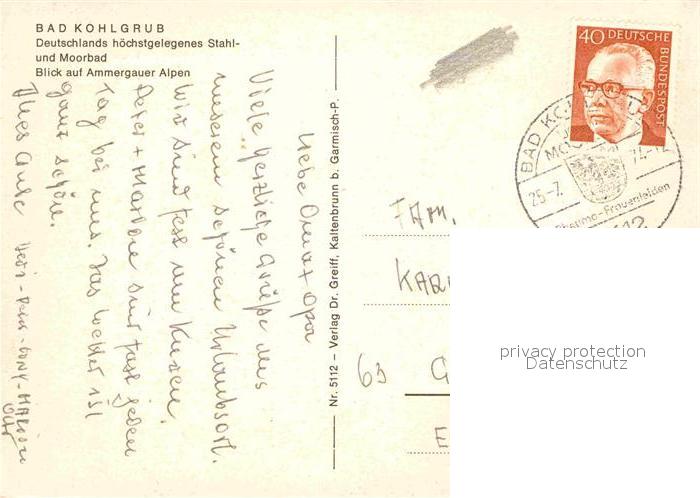 BAD KOHLGRUB
Deutschlands höchstgelegenes Stahl-
und Moorbad
Blick auf Ammergauer Alpen
Liebe Oma + Opa
Viele herzliche Grüße aus
unserem schönen Urlaubsort.
Wir sind fast am Kuren.
Peter + Marlene sind fast jeden
Tag bei uns. Das Wetter ist
ganz schön.
Alles Gute
Nr. 5112 – Verlag Dr. Greiff, Kaltenbrunn b. Garmisch-P.
40 DEUTSCHE
BUNDESPOST
BAD KO
25.-7.
74-12
Rheuma-Frauenleiden
FAM.
KAR
63 G
E
privacy protection
Datenschutz